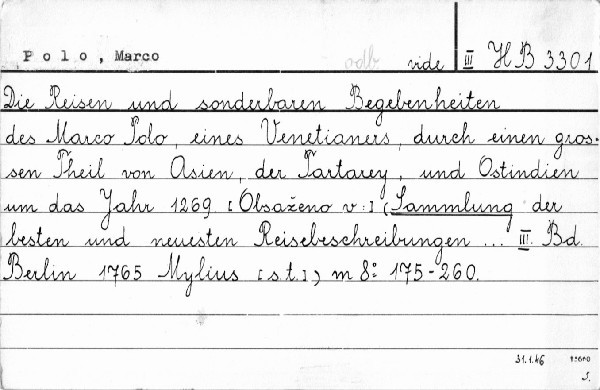 Polo, Marco
odb. vide III H B 3301
Die Reisen und sonderbaren Begebenheiten
des Marco Polo, eines Venetianers, durch einen gros-
sen Theil von Asien, der Tartarey, und Ostindien
um das Jahr 1269. [Obsaženo v:] (Sammlung der
besten und neuesten Reisebeschreibungen ... III. Bd.
Berlin 1765 Mylius [s.t.]) m 8: 175-260.
31.1.46